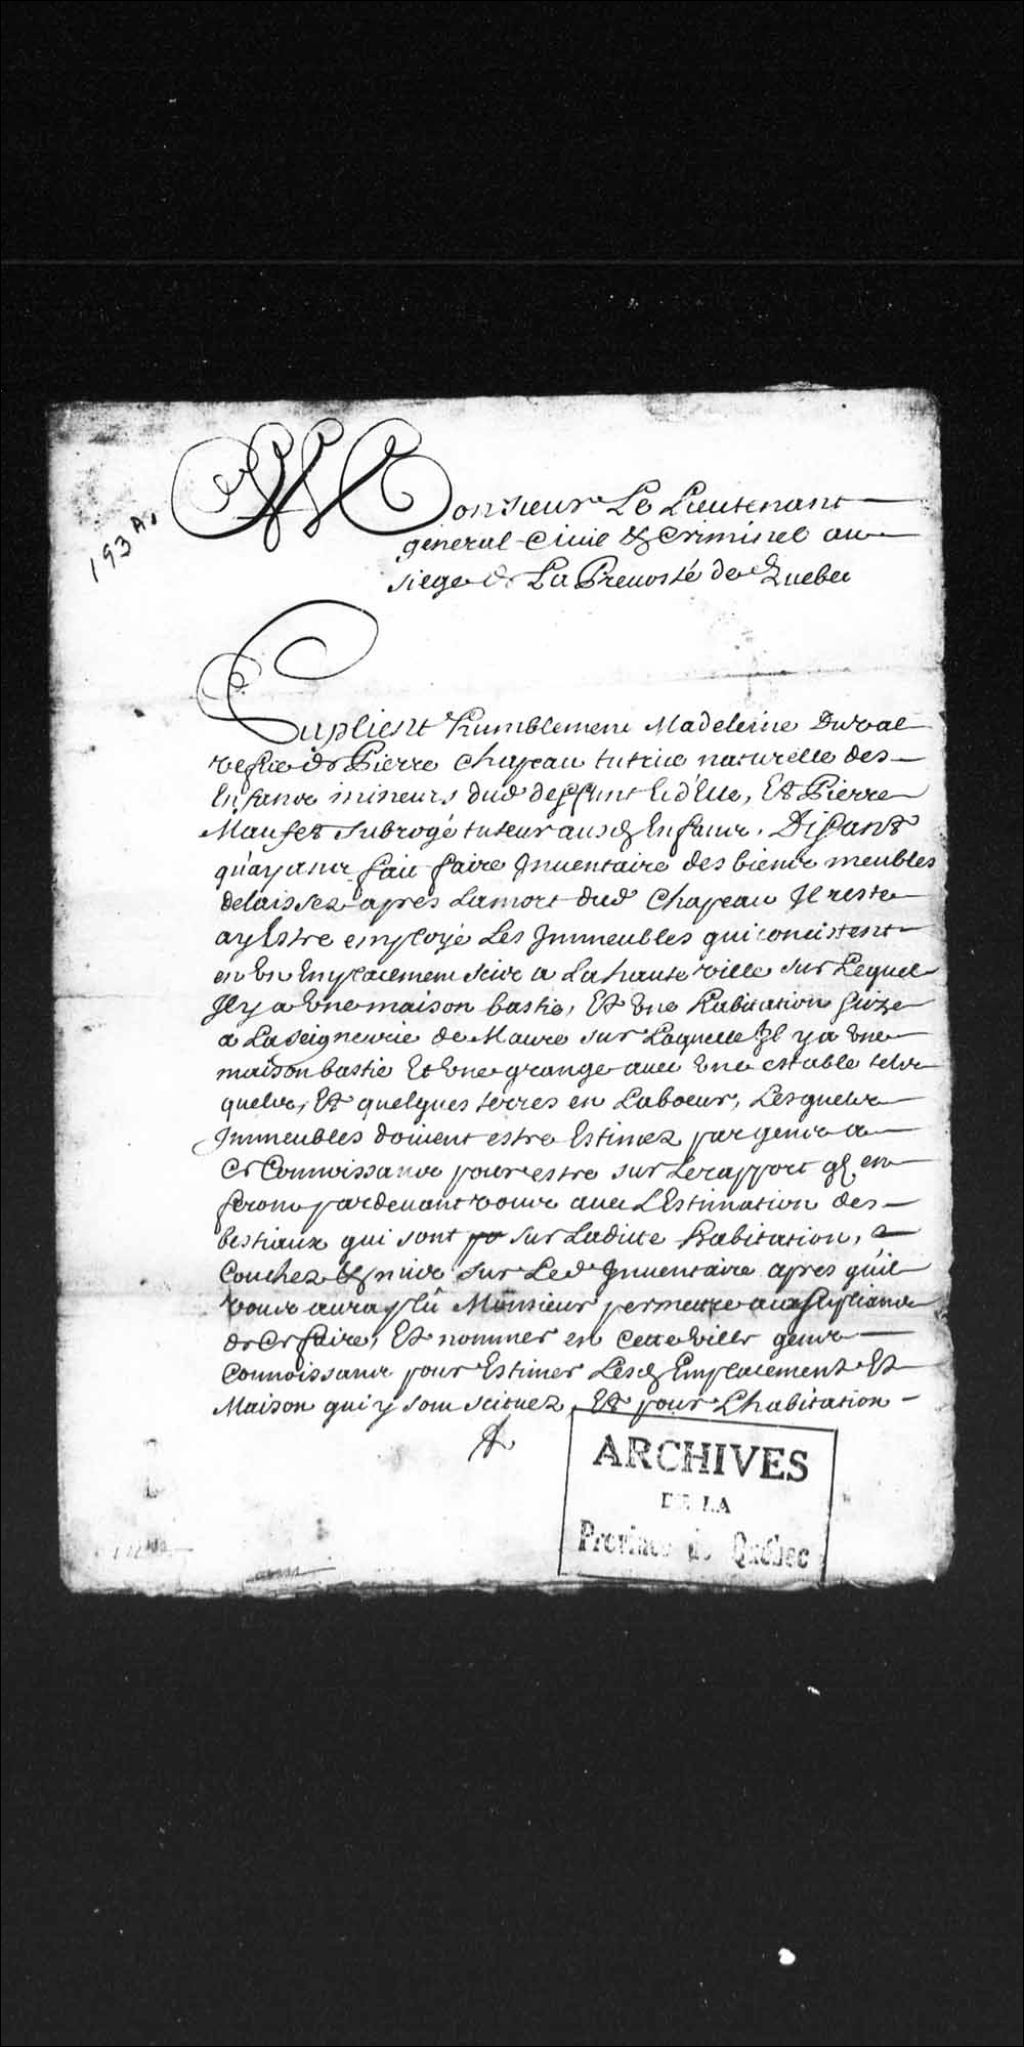 193 A.
Monsieur Le Lieutenant
general Ciuil & Criminel au
siege de La Preuosté de Quebec
Suplient humblement Madeleine Duval
vefue de Pierre Chapeau tutrice naturelle des
Enfans mineurs dud deffunt & d'Elle, Et Pierre
Maufet subrogé tuteur ausd Enfans. Disant
qu'ayant fait faire Inuentaire des biens meubles
delaissez apres la mort dud Chapeau Il reste
a y Estre employé Les Immeubles qui concistent
en Vn Emplacement scize a La haute ville sur Lequel
Il y a Vne maison bastie, Et Vne habitation size
a La seigneurie de Maure sur Laquelle Il y a Vne
maison bastie Et Vne grange auec Vne estable telle
quelle, Et quelques terres en Labeur, Lesquels
Immeubles doiuent estre Estimez par gens a
Ce Connoissans pour estre sur Le rapport qz en
feront pardeuant vous auec L'Estimation des
bestiaux qui sont sur Laditte habitation,
Couchez & mis sur Led Inuentaire apres qu'il
vous aura plû Monsieur permettre aux supliants
de Ce faire, Et nommer en Cette Ville gens
Connoissans pour Estimer Lesd Emplacement Et
Maison qui y sont scituez, Et pour L'habitation
ARCHIVES
DE LA
Province de Québec